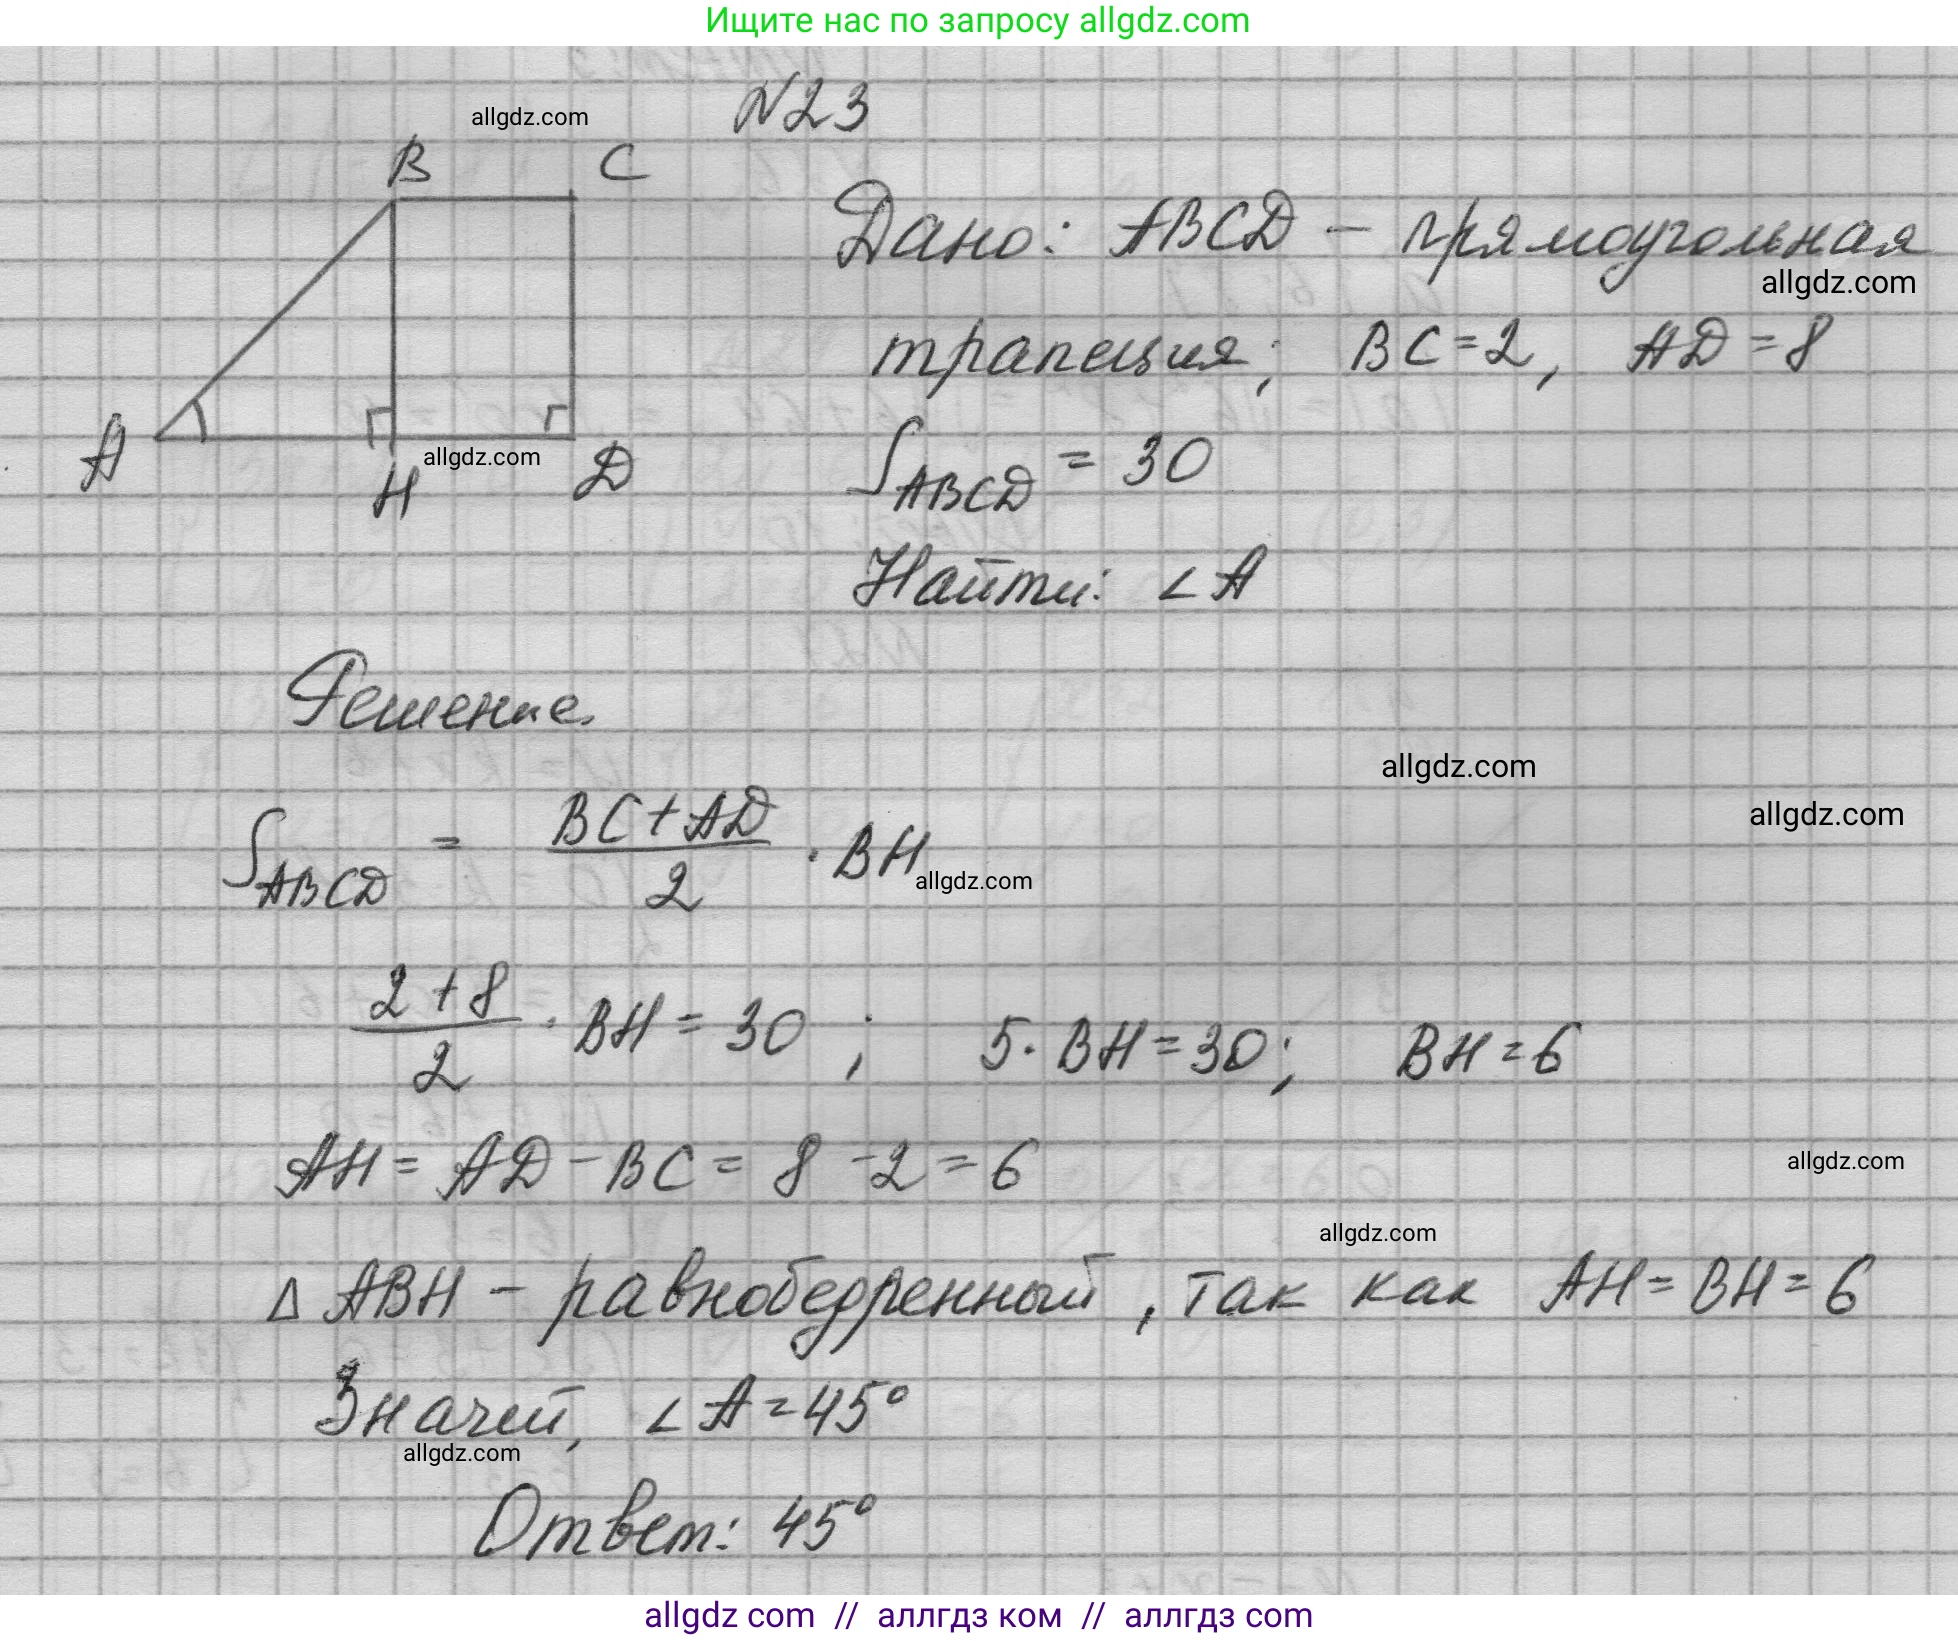 Ищите нас по запросу allgdz.com
N23
allgdz.com
B C
A H D
allgdz.com
Дано: ABCD – прямоугольная
allgdz.com
трапеция; BC = 2, AD = 8
S ABCD = 30
Найти: ∠A
Решение.
allgdz.com
allgdz.com
S ABCD = (BC + AD)/2 · BH
allgdz.com
(2 + 8)/2 · BH = 30 ; 5 · BH = 30; BH = 6
AH = AD – BC = 8 – 2 = 6
allgdz.com
allgdz.com
Δ ABH – равнобедренный, так как AH = BH = 6
Значит, ∠A = 45°
allgdz.com
Ответ: 45°
allgdz com // аллгдз ком // аллгдз com